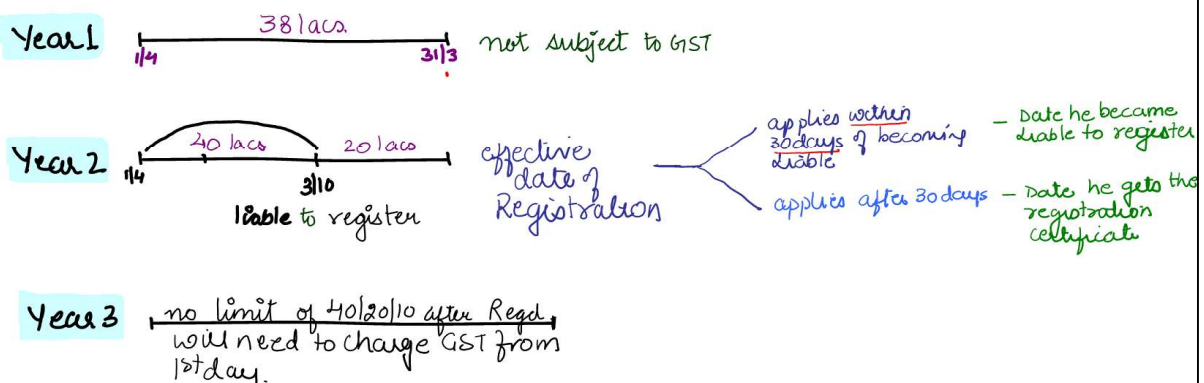 Year 1
38 lacs.
1/4
31/3
not subject to GST
Year 2
40 lacs
20 lacs
1/4
3/10
liable to register
effective
date of
Registration
applies within
30days of becoming
liable
- Date he became
liable to register
applies after 30 days
- Date he gets the
registration
certificate
Year 3
no limit of 40/20/10 after Regd
will need to charge GST from
1st day.